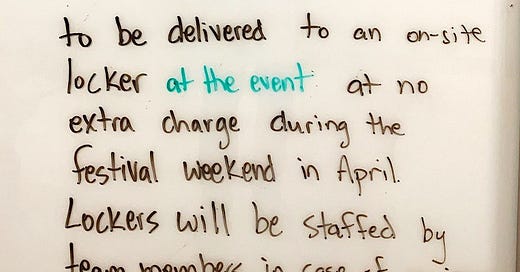 to be delivered to an on-site
locker at the event at no
extra charge during the
festival weekend in April.
Lockers will be staffed by
team members in case of